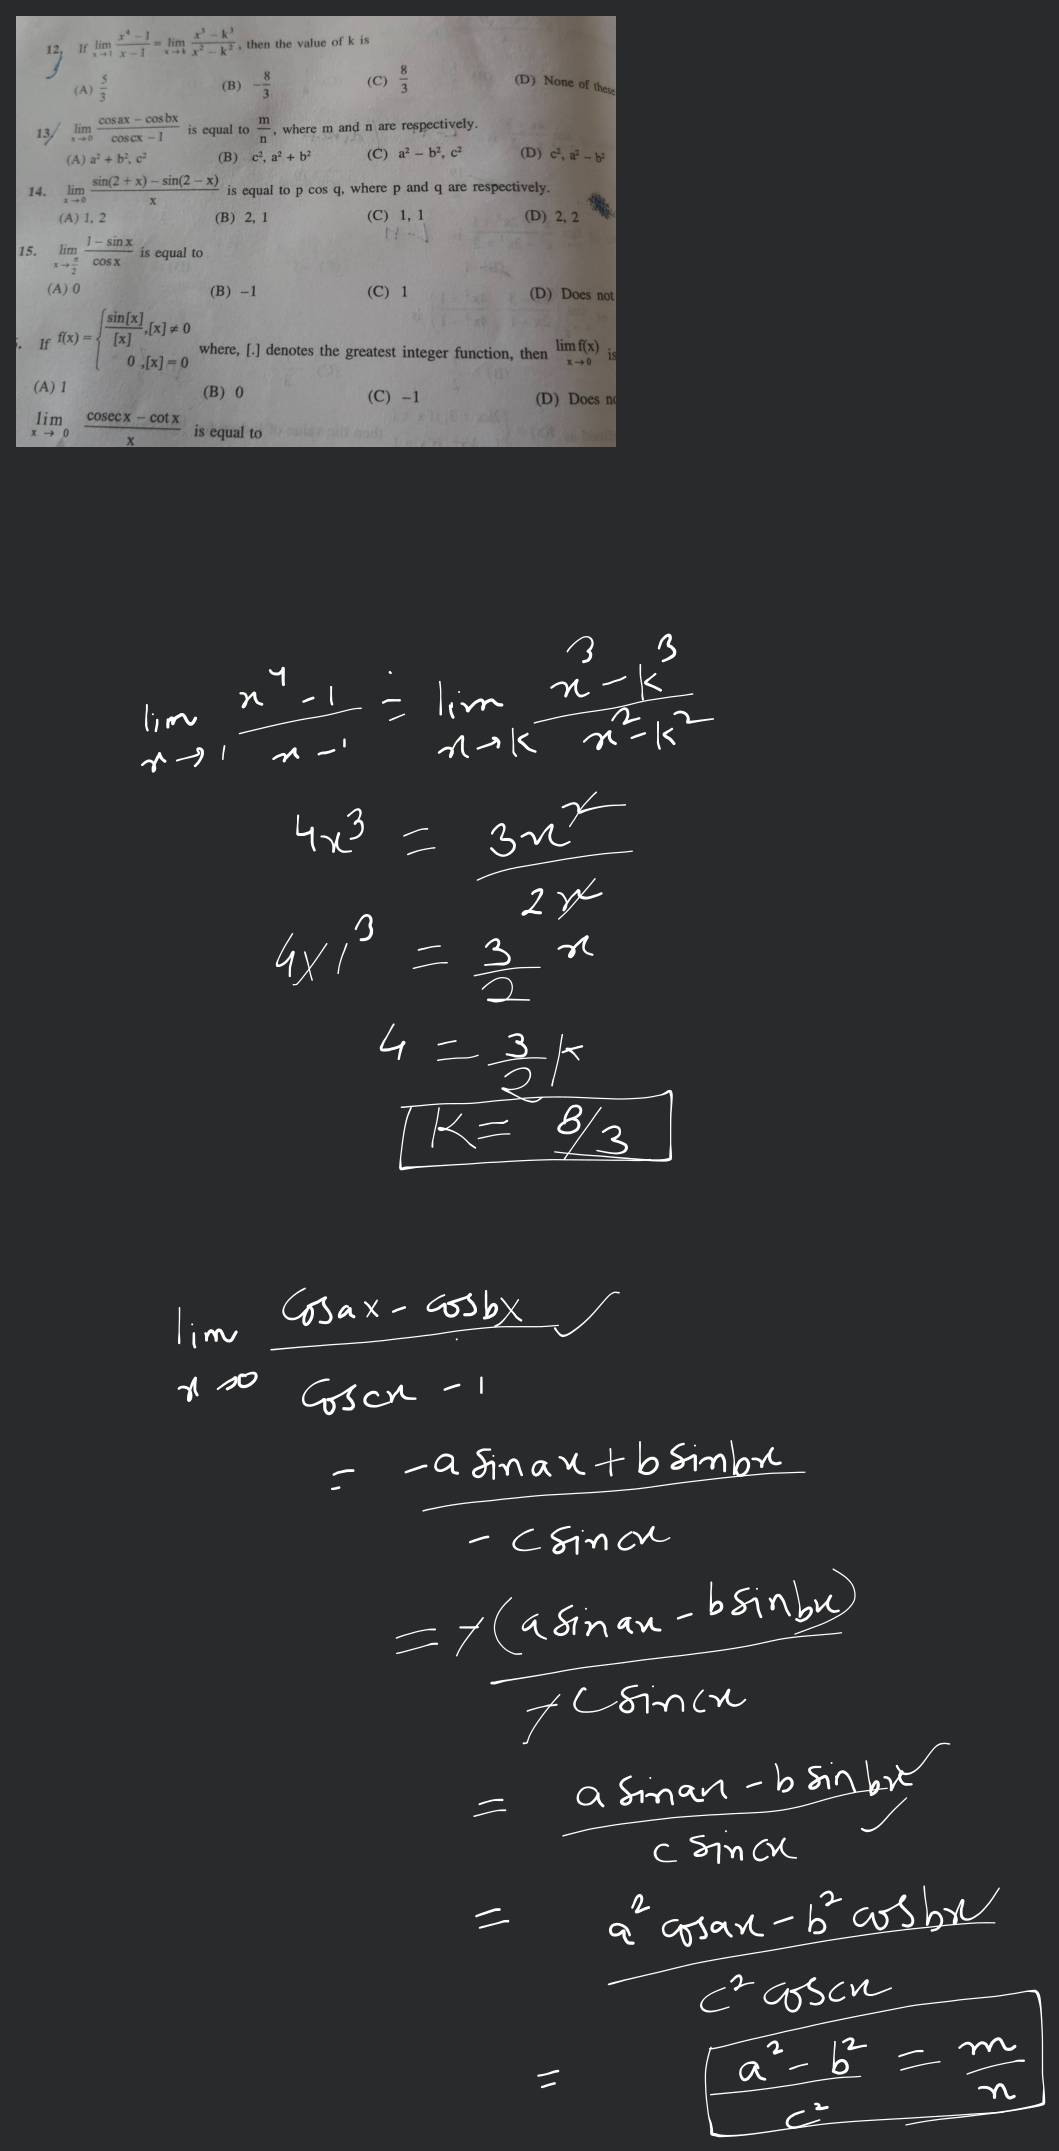 12. If lim x→1 x⁴ − 1 / x − 1 = lim x→k x³ − k³ / x² − k², then the value of k is
(A) 5/3 (B) −8/3 (C) 8/3 (D) None of these
13. lim x→0 cos ax − cos bx / cos cx − 1 is equal to m/n, where m and n are respectively.
(A) a² + b², c² (B) c², a² + b² (C) a² − b², c² (D) c², a² − b²
14. lim x→0 sin(2 + x) − sin(2 − x) / x is equal to p cos q, where p and q are respectively.
(A) 1, 2 (B) 2, 1 (C) 1, 1 (D) 2, 2
15. lim x→π/2 1 − sin x / cos x is equal to
(A) 0 (B) −1 (C) 1 (D) Does not
If f(x) = { sin[x] / [x], [x] ≠ 0
0, [x] = 0 where, [.] denotes the greatest integer function, then lim x→0 f(x) is
(A) 1 (B) 0 (C) −1 (D) Does
lim x → 0 cosec x − cot x / x is equal to
lim x→1 x⁴ - 1 / x - 1 = lim x→k x³ - k³ / x² - k²
4x³ = 3x² / 2x
4×1³ = 3/2 x
4 = 3/2 k
K = 8/3
lim x→0 cos ax - cos bx / cos cx - 1
= -a sin ax + b sin bx / - c sin cx
= -(a sin ax - b sin bx) / -c sin cx
= a sin ax - b sin bx / c sin cx
= a² cos ax - b² cos bx / c² cos cx
= a² - b² / c² = m/n